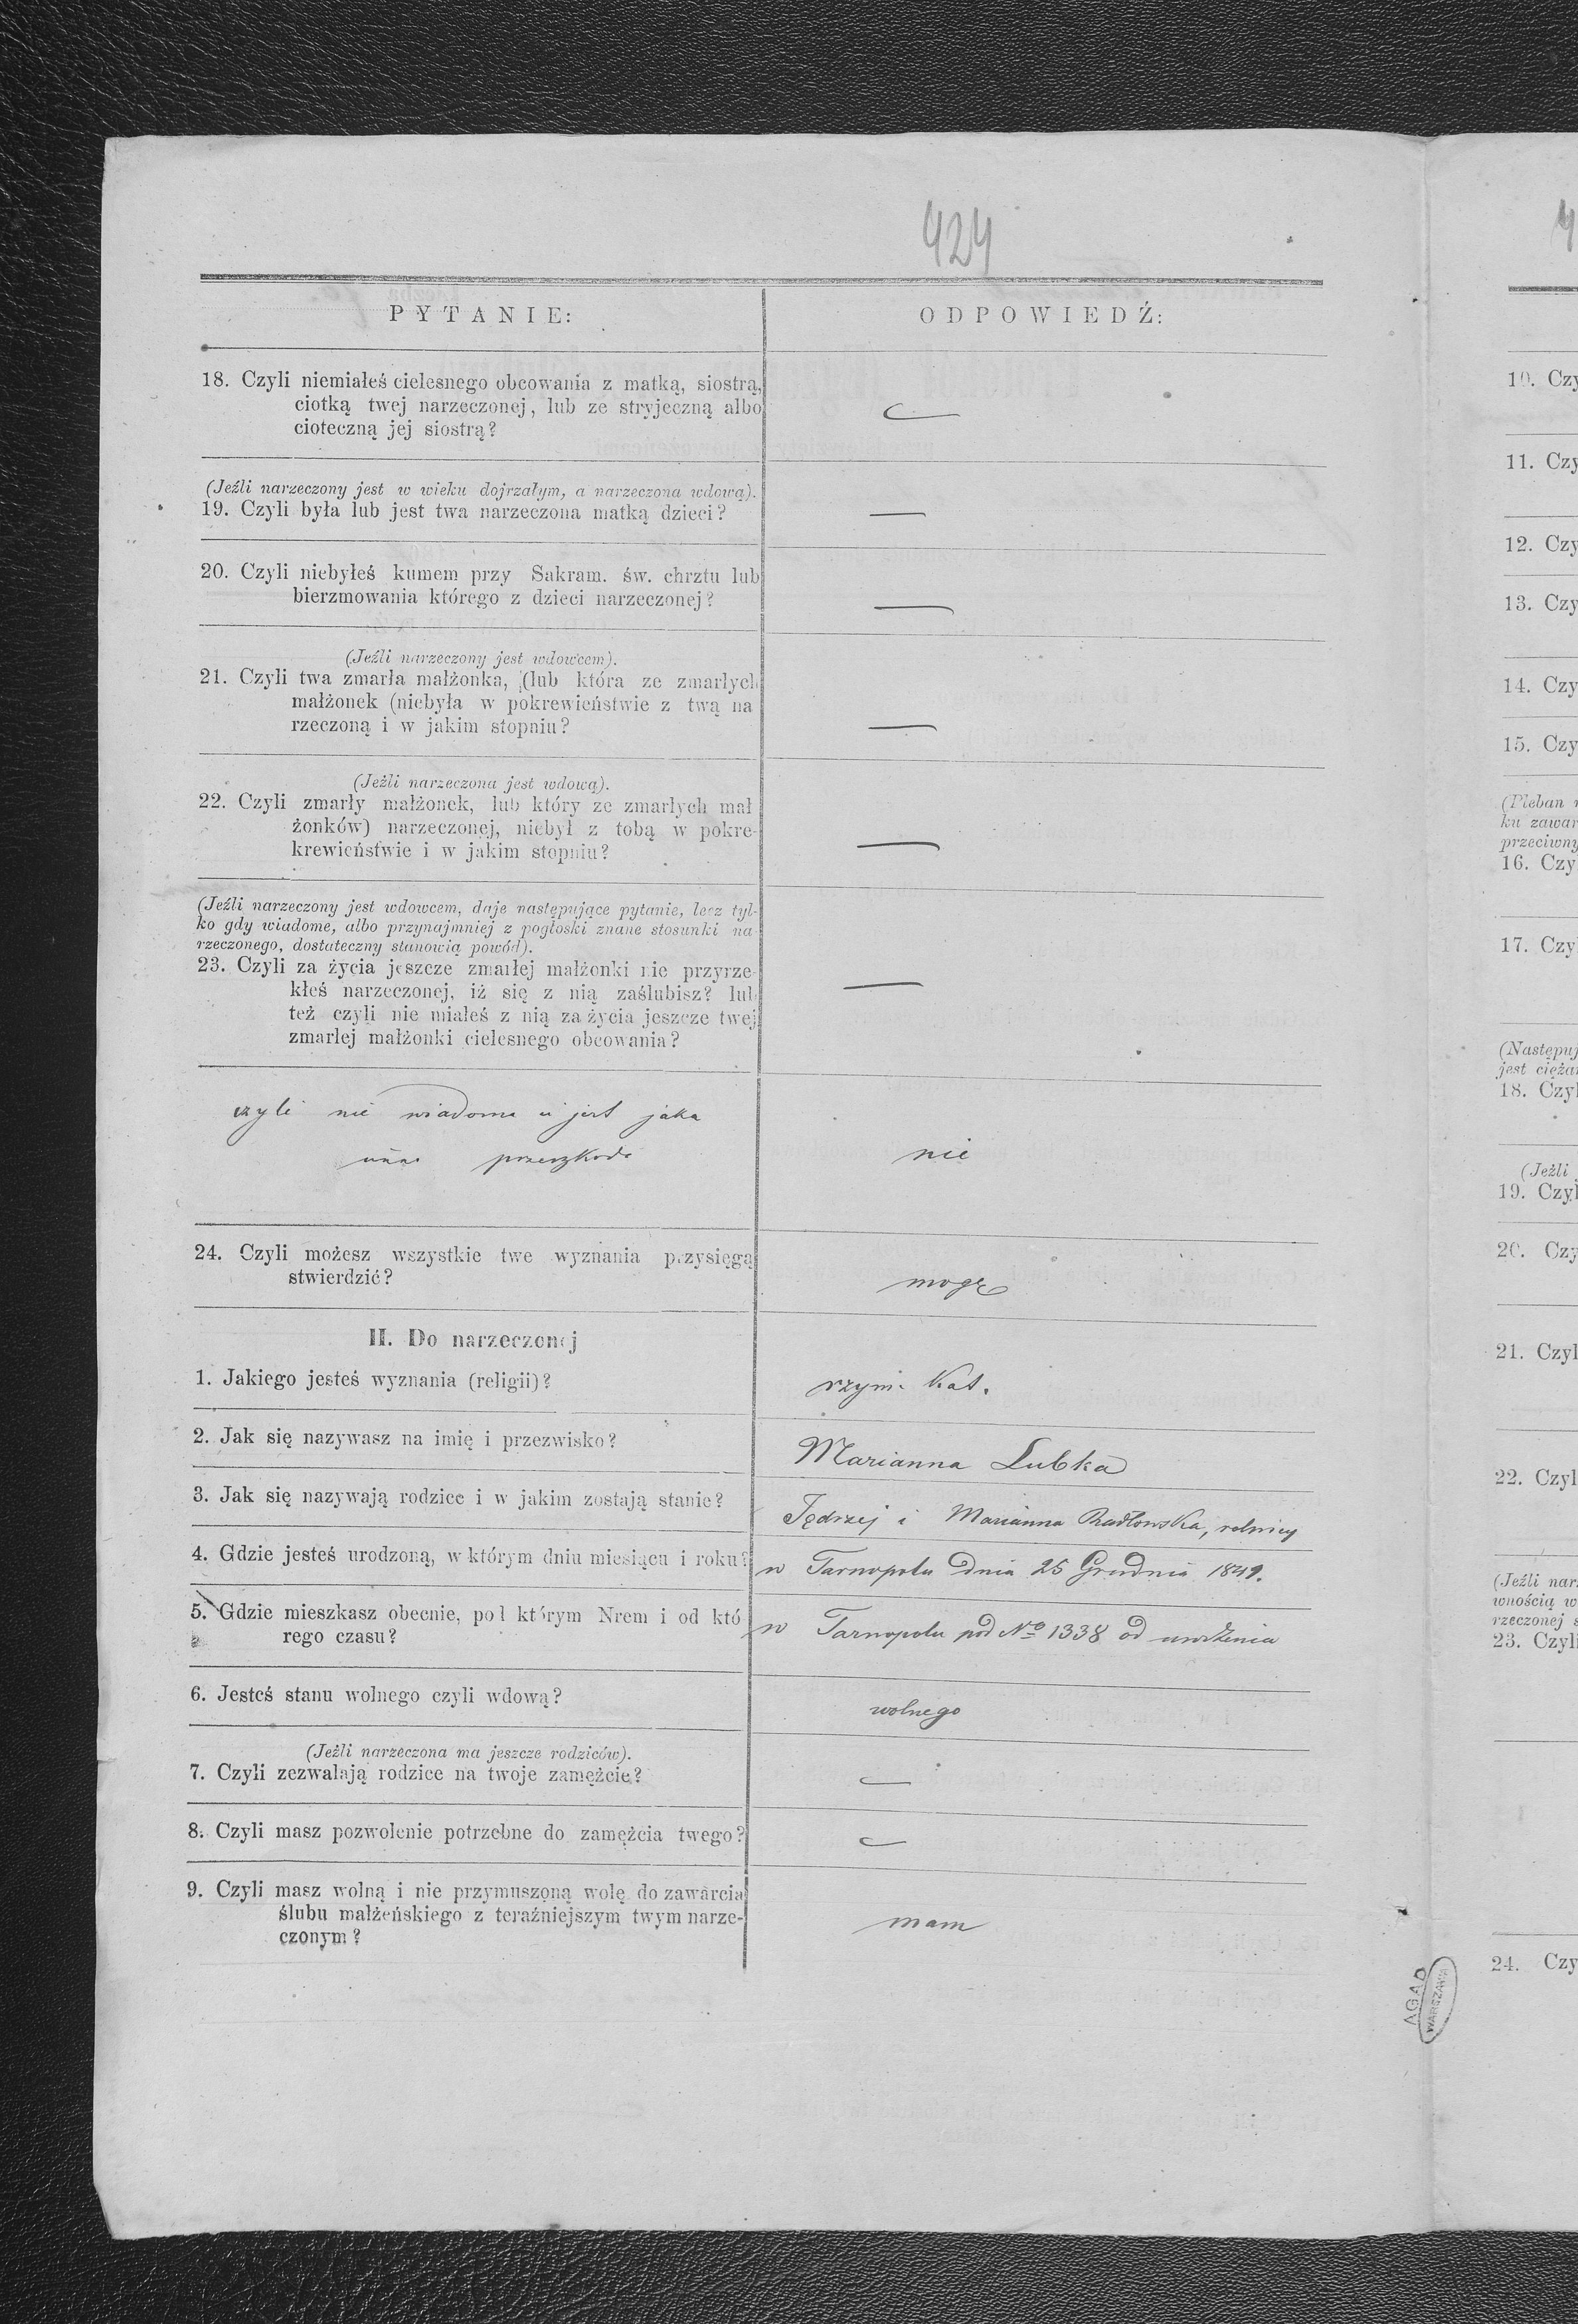 424
PYTANIE:
ODPOWIEDŹ:
18. Czyli niemiałeś cielesnego obcowania z matką, siostrą,
ciotką twej narzeczonej, lub ze stryjeczną albo
cioteczną jej siostrą?
—
(Jeźli narzeczony jest w wieku dojrzałym, a narzeczona wdową).
19. Czyli była lub jest twa narzeczona matką dzieci?
—
20. Czyli niebyłeś kumem przy Sakram. św. chrztu lub
bierzmowania którego z dzieci narzeczonej?
—
(Jeźli narzeczony jest wdowcem).
21. Czyli twa zmarła małżonka, (lub która ze zmarłych
małżonek (niebyła w pokrewieństwie z twą na
rzeczoną i w jakim stopniu?
—
(Jeżli narzeczona jest wdową).
22. Czyli zmarły małżonek, lub który ze zmarłych mał
żonków) narzeczonej, niebył z tobą w pokre-
krewieństwie i w jakim stopniu?
—
(Jeźli narzeczony jest wdowcem, daje następujące pytanie, lecz tyl-
ko gdy wiadome, albo przynajmniej z pogłoski znane stosunki na-
rzeczonego, dostateczny stanowią powód).
23. Czyli za życia jeszcze zmarłej małżonki nie przyrze-
kłeś narzeczonej, iż się z nią zaślubisz? lub
też czyli nie miałeś z nią za życia jeszcze twej
zmarłej małżonki cielesnego obcowania?
—
czyli nie wiadoma ci jest jaka
inna przeszkoda
nie
24. Czyli możesz wszystkie twe wyznania przysięgą
stwierdzić?
mogę
II. Do narzeczonej
1. Jakiego jesteś wyznania (religii)?
rzym. kat.
2. Jak się nazywasz na imię i przezwisko?
Marianna Lubka
3. Jak się nazywają rodzice i w jakim zostają stanie?
Jędrzej i Marianna Radłowska, rolnicy
4. Gdzie jesteś urodzoną, w którym dniu miesiącu i roku?
w Tarnopolu dnia 25 Grudnia 1849.
5. Gdzie mieszkasz obecnie, pod którym Nrem i od któ
rego czasu?
w Tarnopolu pod No 1338 od urodzenia
6. Jesteś stanu wolnego czyli wdową?
wolnego
(Jeżli narzeczona ma jeszcze rodziców).
7. Czyli zezwalają rodzice na twoje zamężcie?
—
8. Czyli masz pozwolenie potrzebne do zamężcia twego?
—
9. Czyli masz wolną i nie przymuszoną wolę do zawarcia
ślubu małżeńskiego z teraźniejszym twym narze-
czonym?
mam
AGAD
WARSZAWA
4
10. Czy
11. Czy
12. Czy
13. Czy
14. Czy
15. Czy
(Pleban
ku zawar
przeciwny
16. Czy
17. Czy
(Następuj
jest cięża
18. Czyl
(Jeżli
19. Czyl
20. Czy
21. Czyl
22. Czyl
(Jeźli nar
wnością w
rzeczonej s
23. Czyli
24. Czy